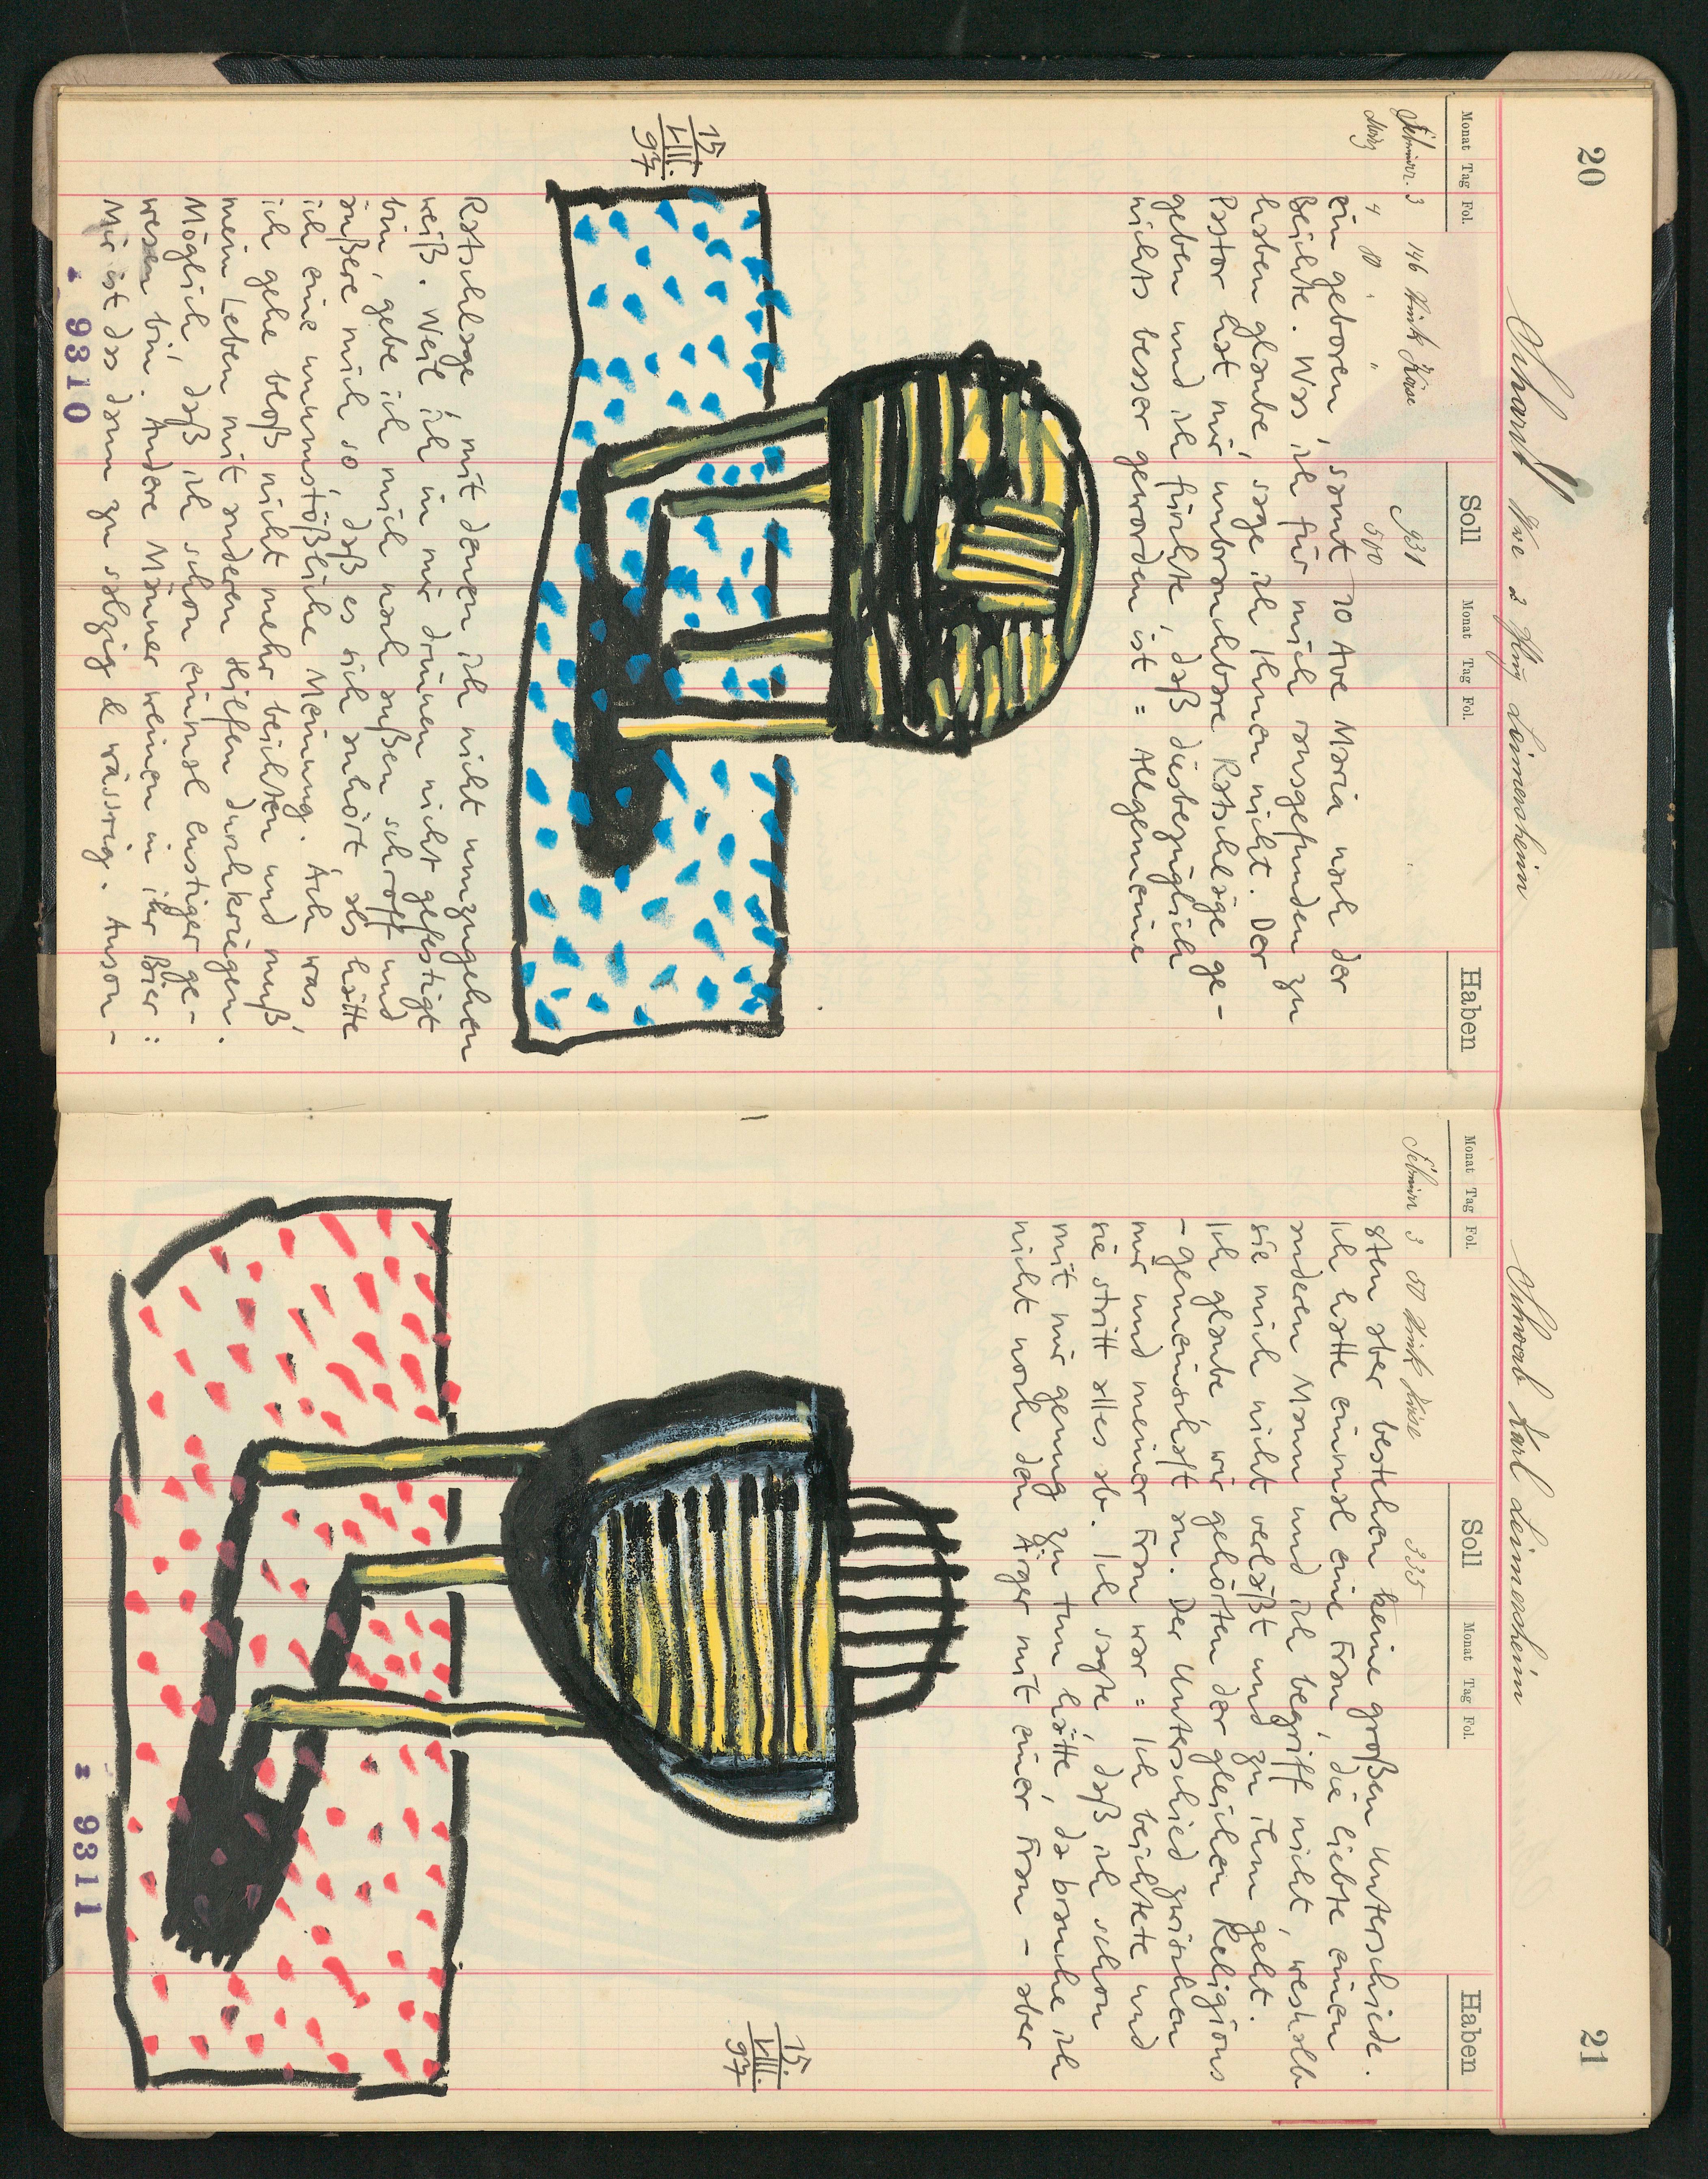 20
Leimersheim
Monat Tag Fol. Soll Monat Tag Fol. Haben
3 146 931
März 4 80 " " 500
ein geboren, samt 10 Ave Maria nach der
Beichte. Was ich für mich rausgefunden zu
haben glaube, sage ich Ihnen nicht. Der
Pastor hat mir unbrauchbare Ratschläge ge-
geben und ich fürchte, daß diesbezüglich
nichts besser geworden ist = Allgemeine
15
VIII.
97
Ratschläge, mit denen ich nicht umzugehen
weiß. Weil ich in mir drinnen nicht gefestigt
bin, gebe ich mich nach außen schroff und
äußere mich so, daß es sich anhört, als hätte
ich eine unumstößliche Meinung. Ach was,
ich gehe bloß nicht mehr beichten und muß
mein Leben mit anderen Hilfen durchkriegen.
Möglich, daß ich schon einmal lustiger ge-
wesen bin. Andere Männer weinen in ihr Bier:
Mir ist das dann zu salzig & wässrig. Anson-
9310
21
Schwab Karl Leimersheim
Monat Tag Fol. Soll Monat Tag Fol. Haben
3 50 335
sten aber bestehen keine großen Unterschiede.
Ich hatte einmal eine Frau, die liebte einen
anderen Mann und ich begriff nicht, weshalb
sie mich nicht verläßt und zu ihm geht.
Ich glaube, wir gehörten der gleichen Religions
-gemeinschaft an. Der Unterschied zwischen
mir und meiner Frau war = Ich beichtete und
sie stritt alles ab. Ich sagte, daß ich schon
mit mir genug zu tun hätte, da brauche ich
nicht noch den Ärger mit einer Frau - aber
15.
VIII.
97
9311